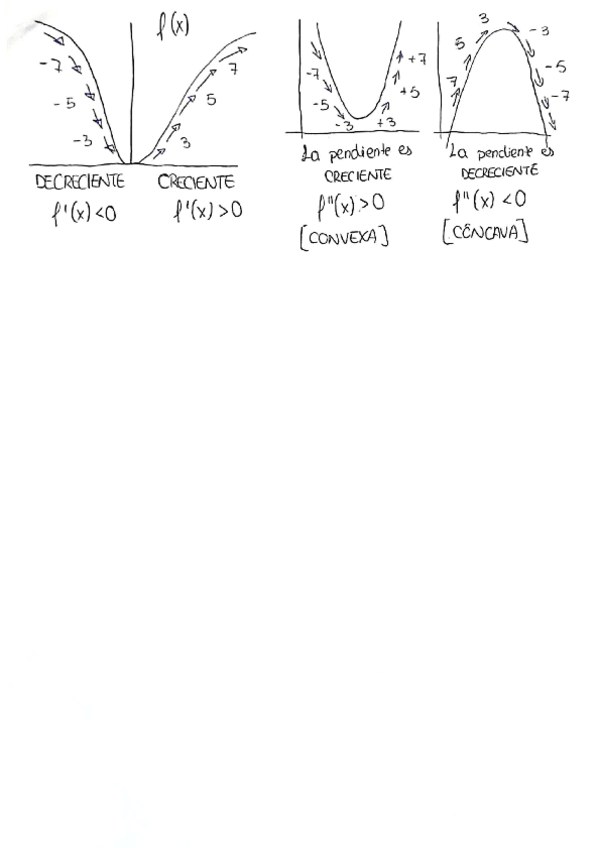 f(x)
-7
-5
-3
3
5
7
DECRECIENTE
f'(x)<0
CRECIENTE
f'(x)>0
-7
-5
-3
+3
+5
+7
La pendiente es
CRECIENTE
f"(x)>0
[CONVEXA]
7
5
3
-3
-5
-7
La pendiente es
DECRECIENTE
f"(x)<0
[CÓNCAVA]